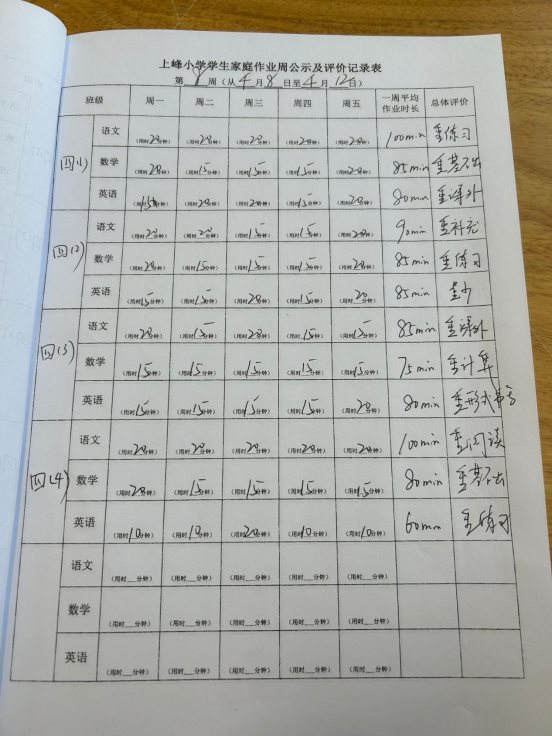 上峰小学学生家庭作业周公示及评价记录表
第 8 周（从 4 月 8 日至 4 月 12日）
班级 周一 周二 周三 周四 周五 一周平均作业时长 总体评价
四(1) 语文 (用时20分钟) (用时20分钟) (用时20分钟) (用时20分钟) (用时20分钟) 100min 重练习
数学 (用时20分钟) (用时15分钟) (用时15分钟) (用时15分钟) (用时20分钟) 85min 重基础
英语 (用时15分钟) (用时20分钟) (用时20分钟) (用时15分钟) (用时20分钟) 80min 重课外
四(2) 语文 (用时20分钟) (用时20分钟) (用时15分钟) (用时15分钟) (用时20分钟) 90min 重补充
数学 (用时20分钟) (用时15分钟) (用时15分钟) (用时15分钟) (用时20分钟) 85min 重练习
英语 (用时15分钟) (用时15分钟) (用时20分钟) (用时15分钟) (用时20分钟) 85min
四(3) 语文 (用时20分钟) (用时15分钟) (用时20分钟) (用时15分钟) (用时15分钟) 85min 重课外
数学 (用时15分钟) (用时15分钟) (用时15分钟) (用时15分钟) (用时15分钟) 75min 重计算
英语 (用时15分钟) (用时15分钟) (用时15分钟) (用时15分钟) (用时20分钟) 80min 重形式
四(4) 语文 (用时20分钟) (用时20分钟) (用时20分钟) (用时20分钟) (用时20分钟) 100min 重阅读
数学 (用时20分钟) (用时15分钟) (用时15分钟) (用时15分钟) (用时15分钟) 80min 重基础
英语 (用时10分钟) (用时10分钟) (用时20分钟) (用时10分钟) (用时10分钟) 60min 重练习
语文 (用时__分钟) (用时__分钟) (用时__分钟) (用时__分钟) (用时__分钟)
数学 (用时__分钟) (用时__分钟) (用时__分钟) (用时__分钟) (用时__分钟)
英语 (用时__分钟) (用时__分钟) (用时__分钟) (用时__分钟) (用时__分钟)